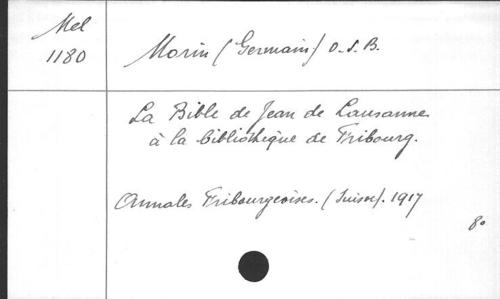 Mel
1180
Morin (Germain) O.S.B.
La Bible de Jean de Lausanne
à la bibliothèque de Fribourg.
Annales Fribourgeoises. (Suisse). 1917
8º